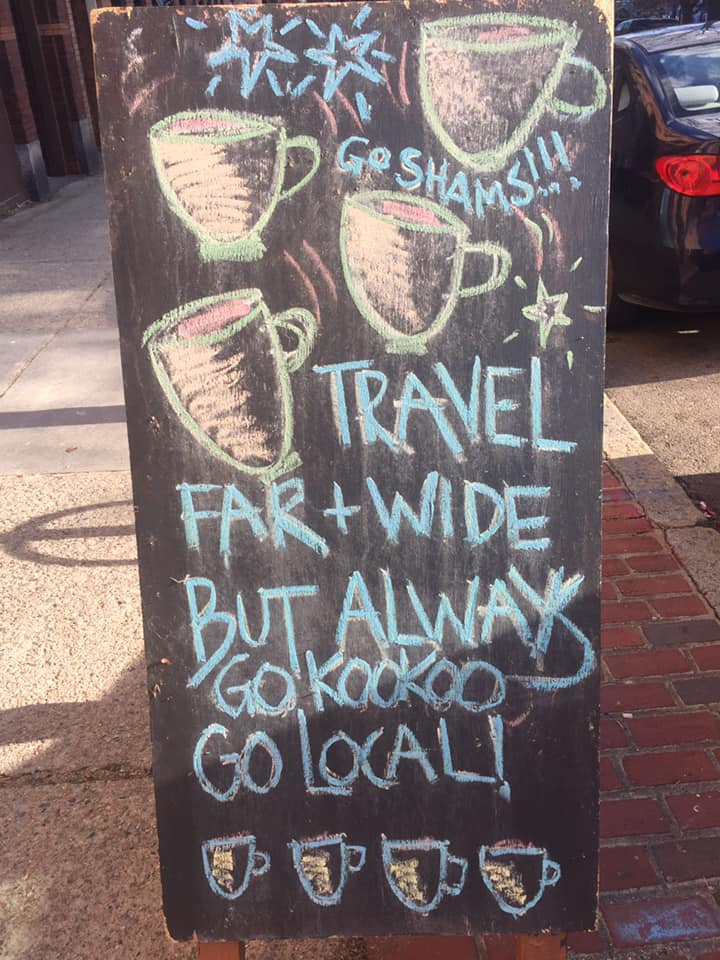 GO SHAMS!!!
TRAVEL
FAR + WIDE
BUT ALWAYS
GO KOOKOO
GO LOCAL!